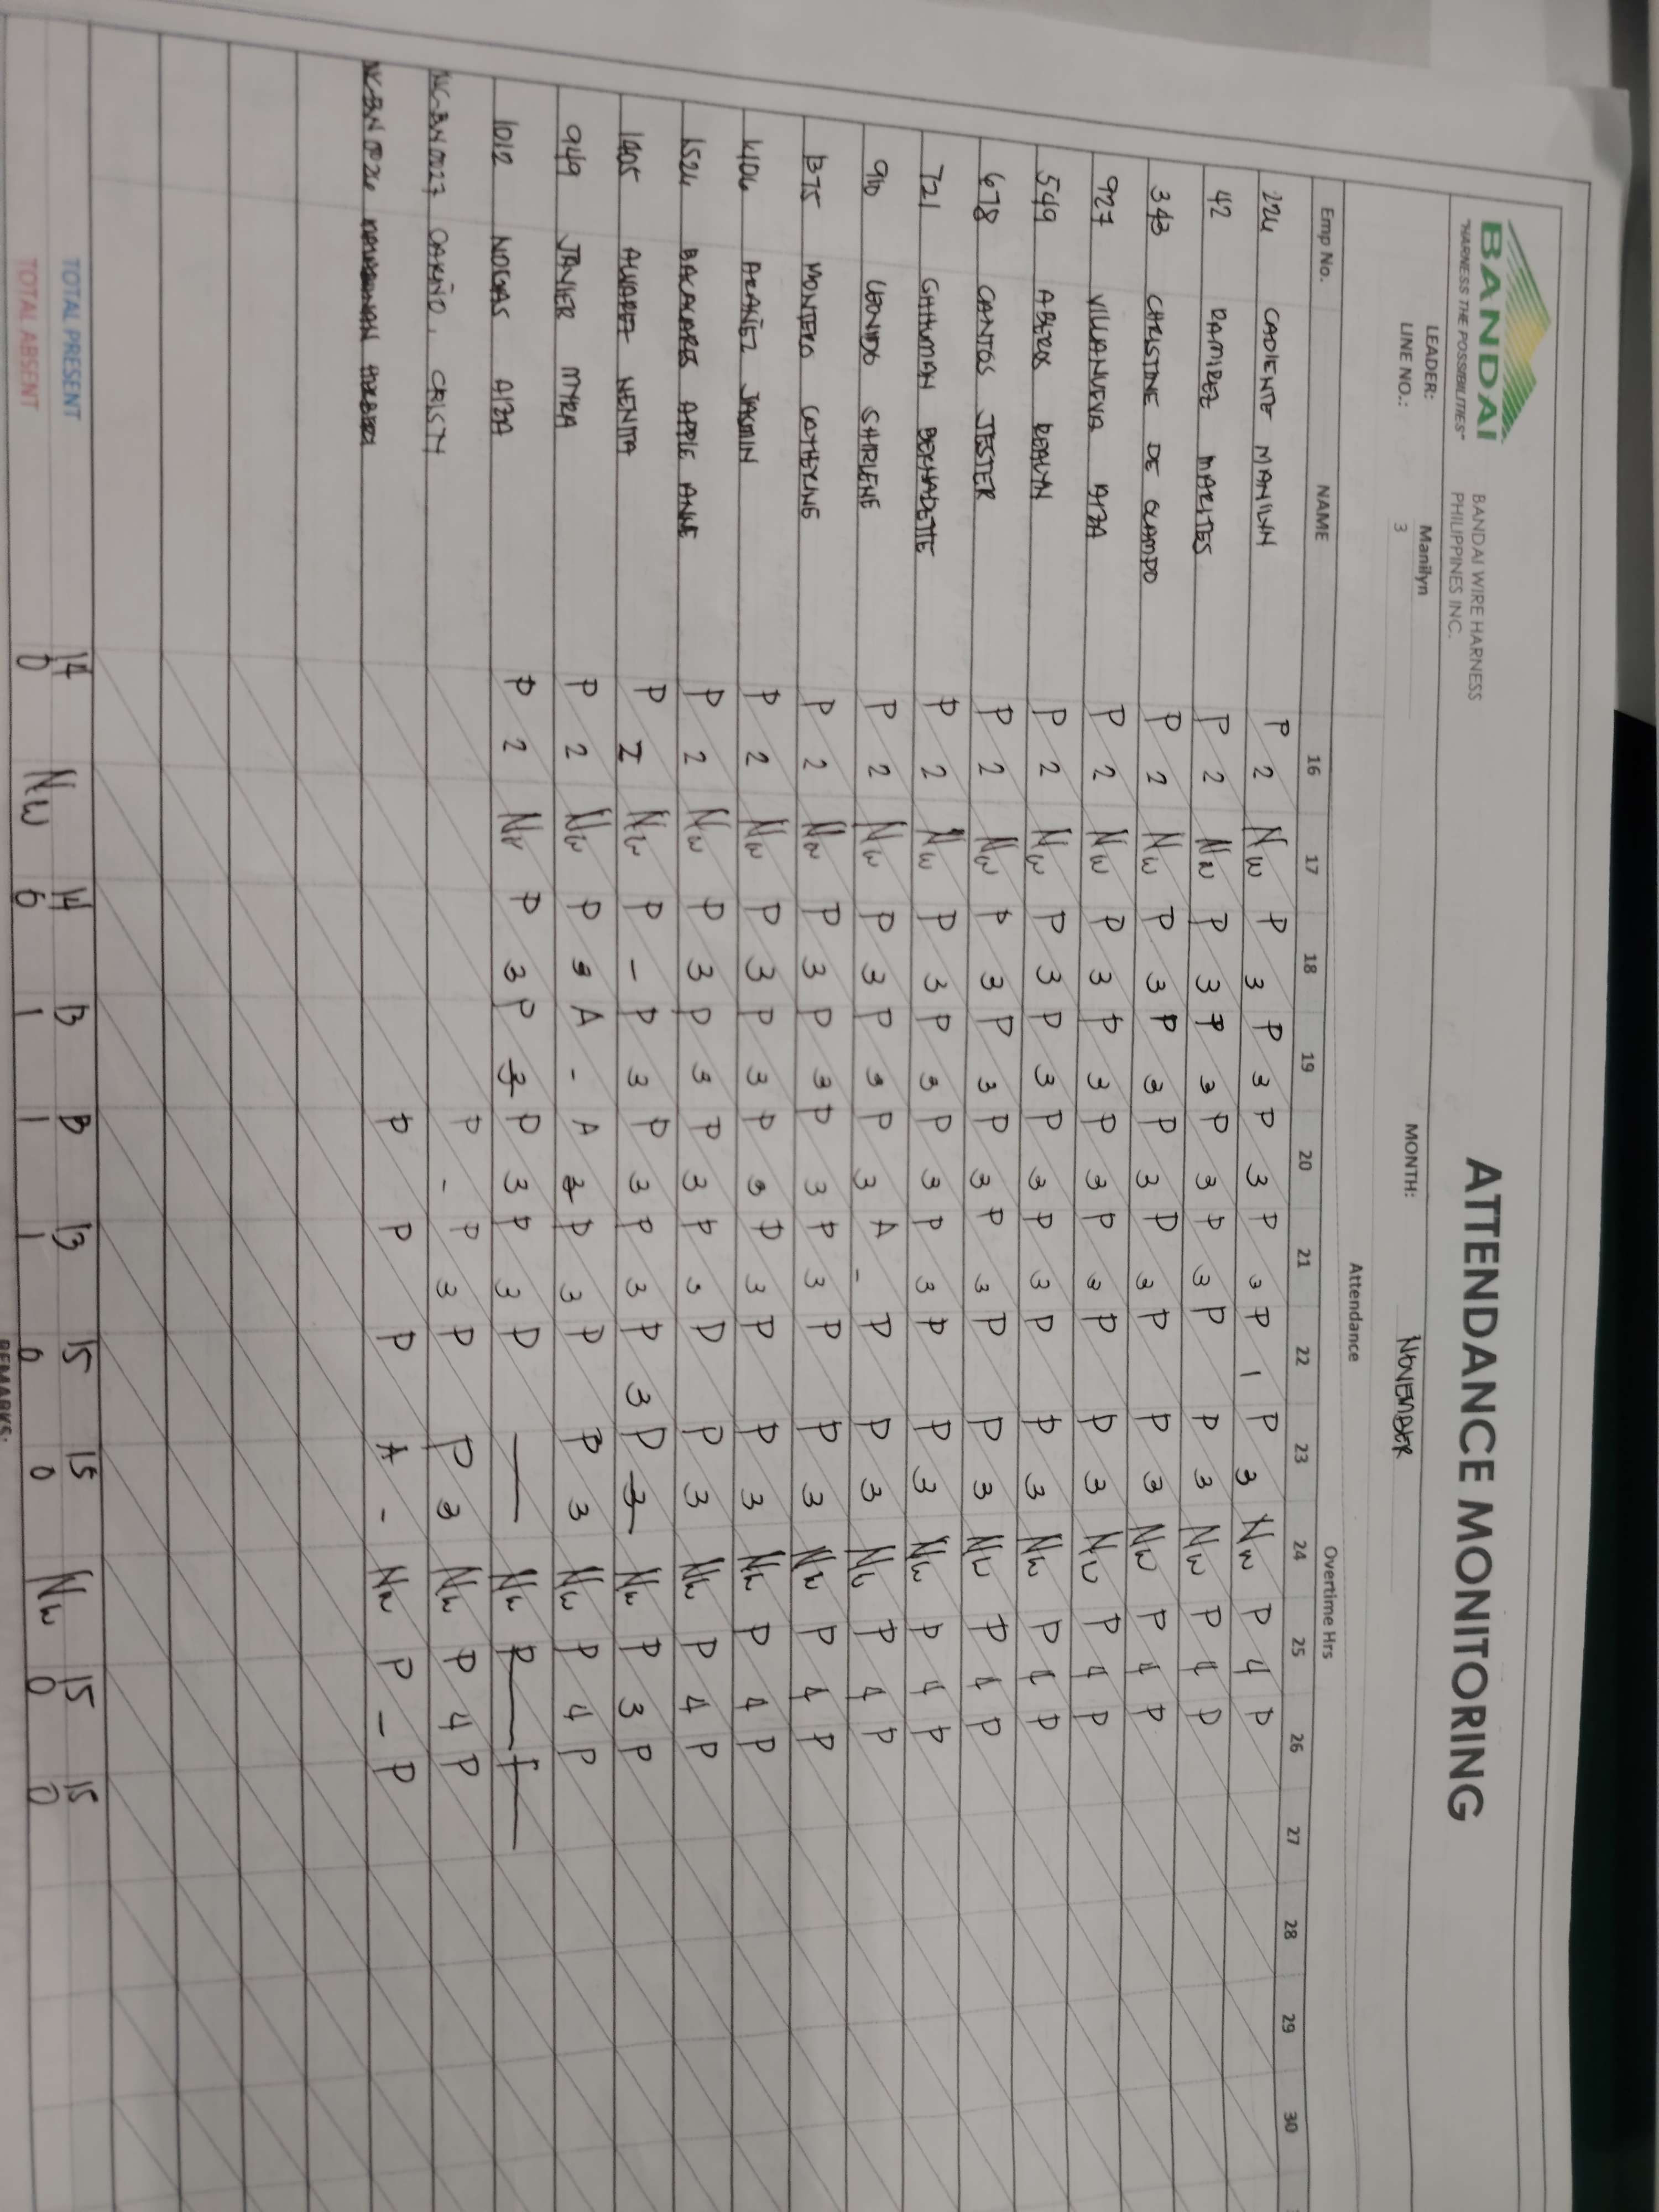 BANDAI
"HARNESS THE POSSIBILITIES"
BANDAI WIRE HARNESS
PHILIPPINES INC.
ATTENDANCE MONITORING
LEADER: Manilyn
LINE NO.: 3
MONTH: NOVEMBER
Attendance
Overtime Hrs
Emp No. NAME 16 17 18 19 20 21 22 23 24 25 26 27 28 29 30
224 CADIENTE MANILYN P 2 NW P 3 P 3 P 3 P 3 P 1 P 3 NW P 4 P
42 RAMIREZ MARITES P 2 NW P 3 P 3 P 3 P 3 P P 3 NW P 4 P
343 CHRISTINE DE OCAMPO P 2 NW P 3 P 3 P 3 P 3 P P 3 NW P 4 P
927 VILLANUEVA AIZA P 2 NW P 3 P 3 P 3 P 3 P P 3 NW P 4 P
549 ABEROS REALYN P 2 NW P 3 P 3 P 3 P 3 P P 3 NW P 4 P
678 CANTOS JESTER P 2 NW P 3 P 3 P 3 P 3 P P 3 NW P 4 P
721 GHUMAN BERNADETTE P 2 NW P 3 P 3 P 3 P 3 P P 3 NW P 4 P
LEONIDO SHIRLENE P 2 NW P 3 P 3 P 3 A - P P 3 NW P 4 P
1375 MONTERO CATHERINE P 2 NW P 3 P 3 P 3 P 3 P P 3 NW P 4 P
ARAÑEZ JASMIN P 2 NW P 3 P 3 P 3 P 3 P P 3 NW P 4 P
1524 BACALARES APPLE ANNE P 2 NW P 3 P 3 P 3 P 3 P P 3 NW P 4 P
1405 ALVAREZ NENITA P 2 NW P - P 3 P 3 P 3 P 3 P 3 NW P 3 P
949 JAVIER MYRA P 2 NW P 3 A - A P 3 P P 3 NW P 4 P
1012 NOGAS AIZA P 2 NW P 3 P 3 P 3 P 3 P NW P
NC-BN0027 CARIÑO, CRISTY P - P 3 P P 3 NW P 4 P
P P P A - NW P - P
TOTAL PRESENT 14 NW 14 13 13 13 15 15 NW 15 15
TOTAL ABSENT 0 0 1 1 1 0 0 0 0
REMARKS: